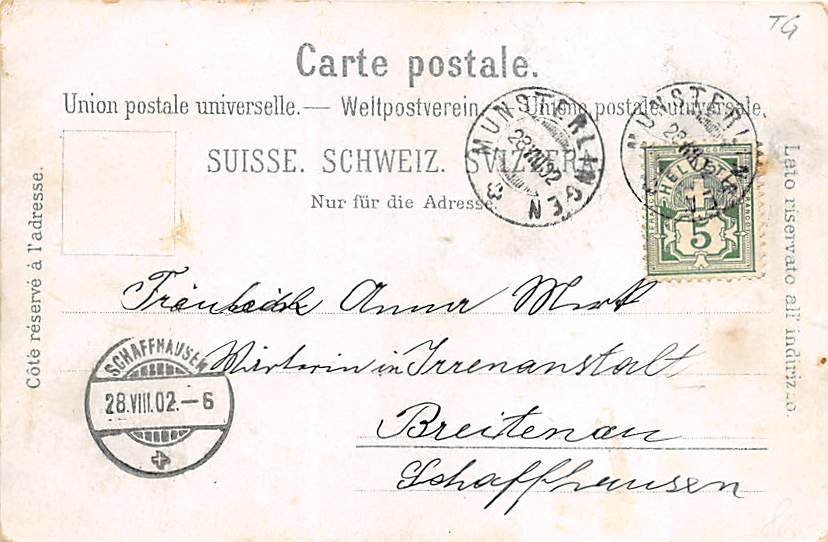 TG
Carte postale.
Union postale universelle. — Weltpostverein. — Unione postale universale.
SUISSE. SCHWEIZ. SVIZZERA.
Nur für die Adresse.
Côté réservé à l'adresse.
Lato riservato all' indirizzo.
MÜNSTERLINGEN
28.VIII.02
HELVETIA
5
Anna
Wärterin in Irrenanstalt
Breitenau
Schaffhausen
SCHAFFHAUSEN
28.VIII.02.-6